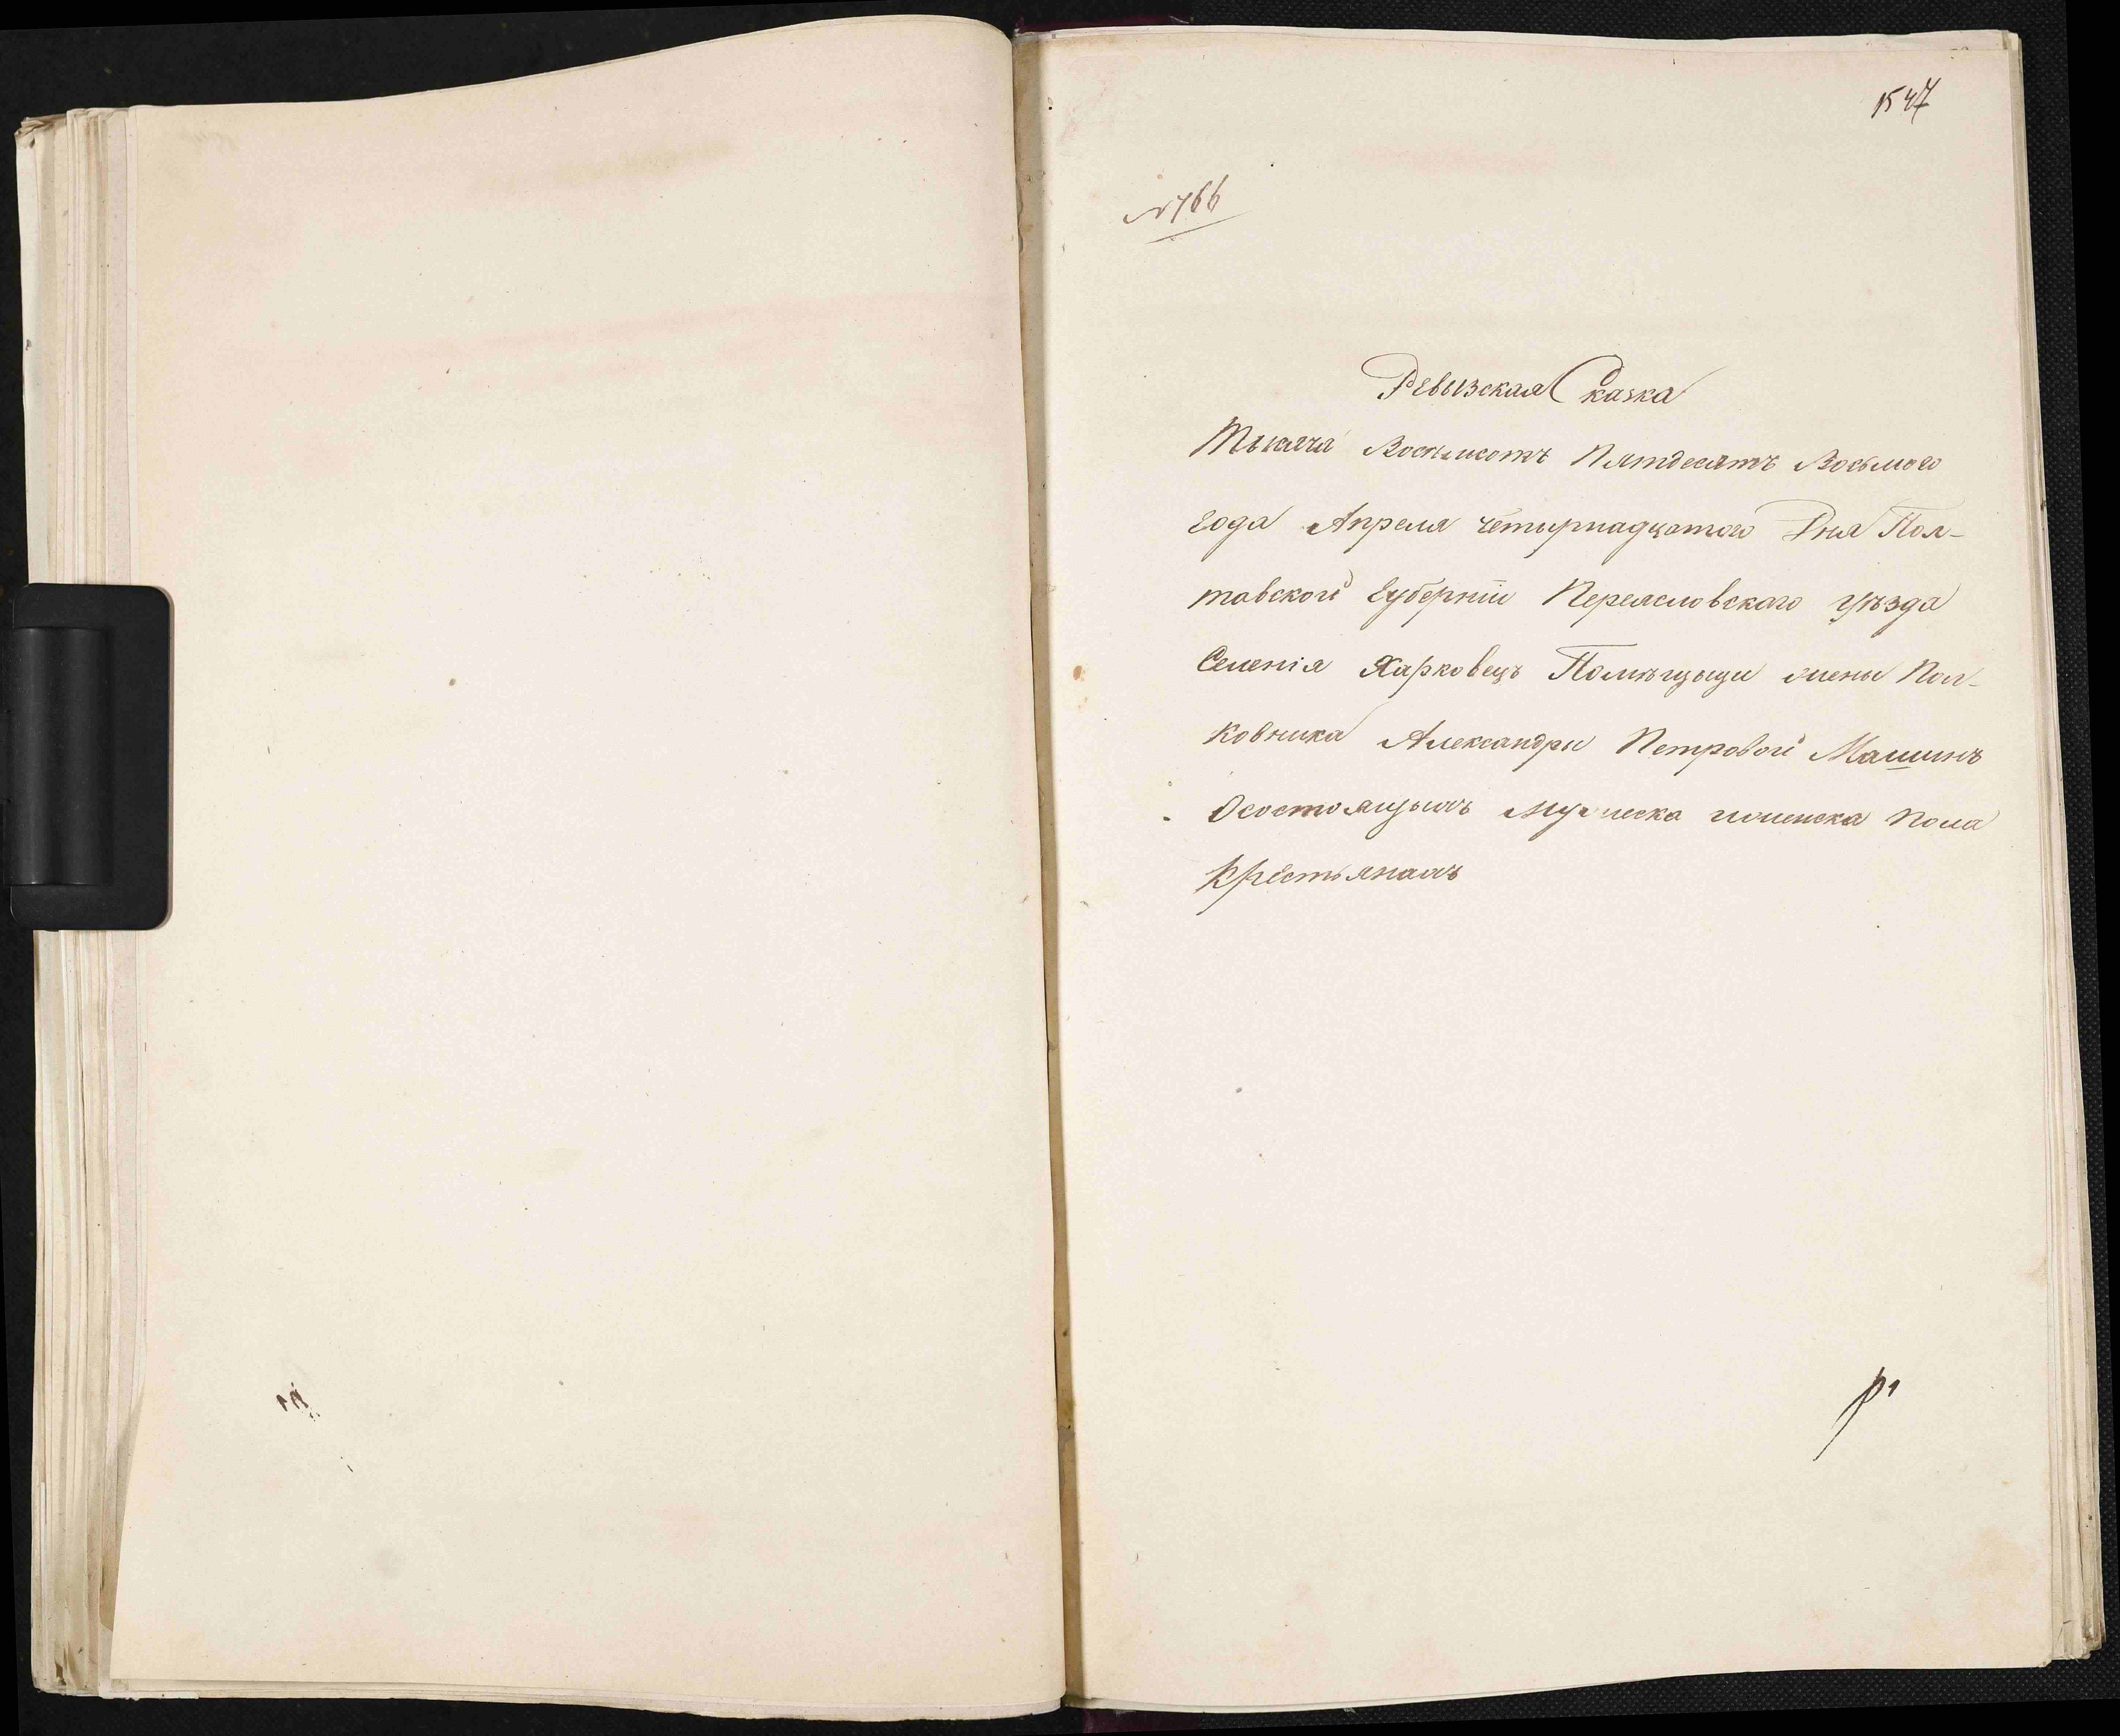 1547
№766
Ревызская Сказка
Тысяча Восѣмсотъ Пятдесятъ Восьмого
года Апреля четырнадцатого Дня Пол-
тавской Губерніи Переясловскаго уѣзда
Селенія Харковецъ Помѣщыци жены Пол-
ковника Александры Петровой Машинъ
Осостоящыхъ Мужеска иженска Пола
Крестьянахъ